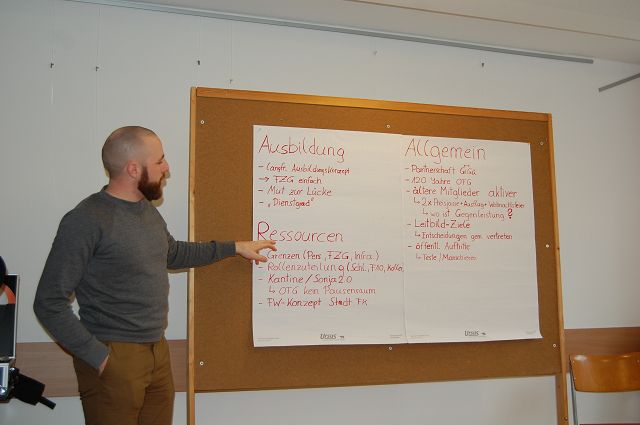 Ausbildung
- langfr. Ausbildungskonzept
→ FZG einfach
- Mut zur Lücke
- „Dienstgrad"
Ressourcen
- Grenzen (Pers., FZG, Infra.)
- Rollenzuteilung (Schl., FKO, KoKa
- Kantine / Sonja 2.0
↳ OTG kein Pausenraum
- FW-Konzept Stadt FK
Ursus
Allgemein
- Partnerschaft GiGa
- 120 Jahre OTG
- ältere Mitglieder aktiver
↳ 2x Prosänie + Ausflug + Weihnachtsfeier
↳ wo ist Gegenleistung ?
- Leitbild-Ziele
↳ Entscheidungen gem. vertreten
- öffentl. Auftritte
↳ Feste / Marschieren
Ursus